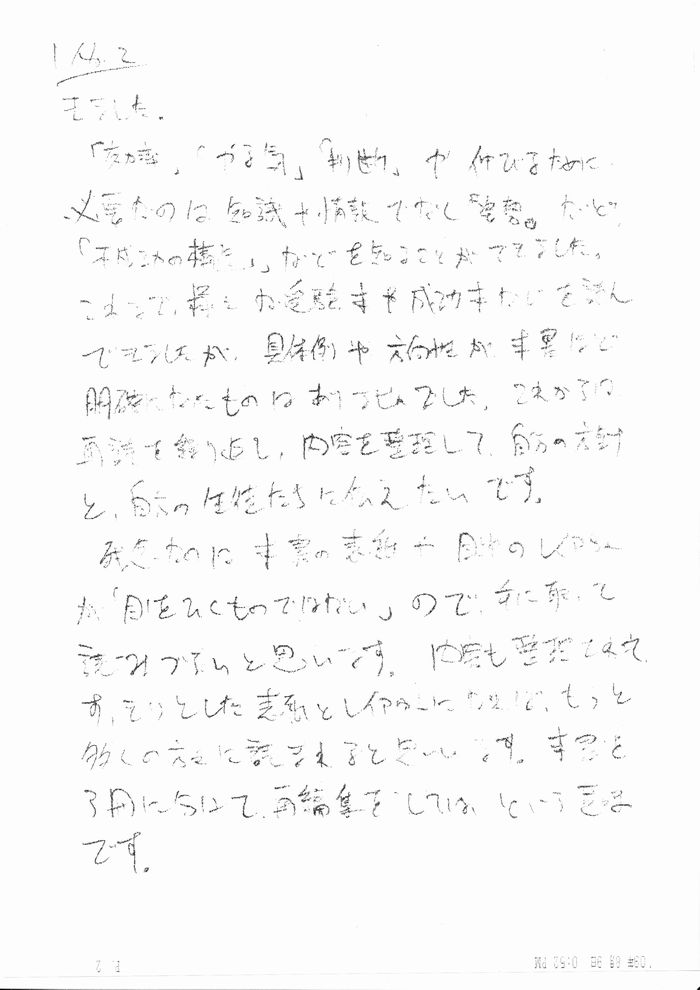 No. 2
きました。
「」「やる気」「判断」が伸びるために
必要なのは知識や情報でなく『姿勢』など、
「不成功の構造」などを知ることができました。
これまで、様々な受験本や成功本などを読ん
できましたが、具体例や方向性が本書ほど
明確になったものはありませんでした。これからは
再読を繰り返し、内容を整理して、自分の方針
と、自分の生徒たちに伝えたいです。
残念なのは本書の表紙や目次のレイアウト
が「目をひくものではない」ので、手に取って
読みづらいと思います。内容も整理されて
す、きりとした表紙とレイアウトになれば、もっと
多くの方々に読まれると思います。本書を
3月に5けて、再編集をしては、という意味
です。
P. 2
'09年 6月 9日 0:52 PM